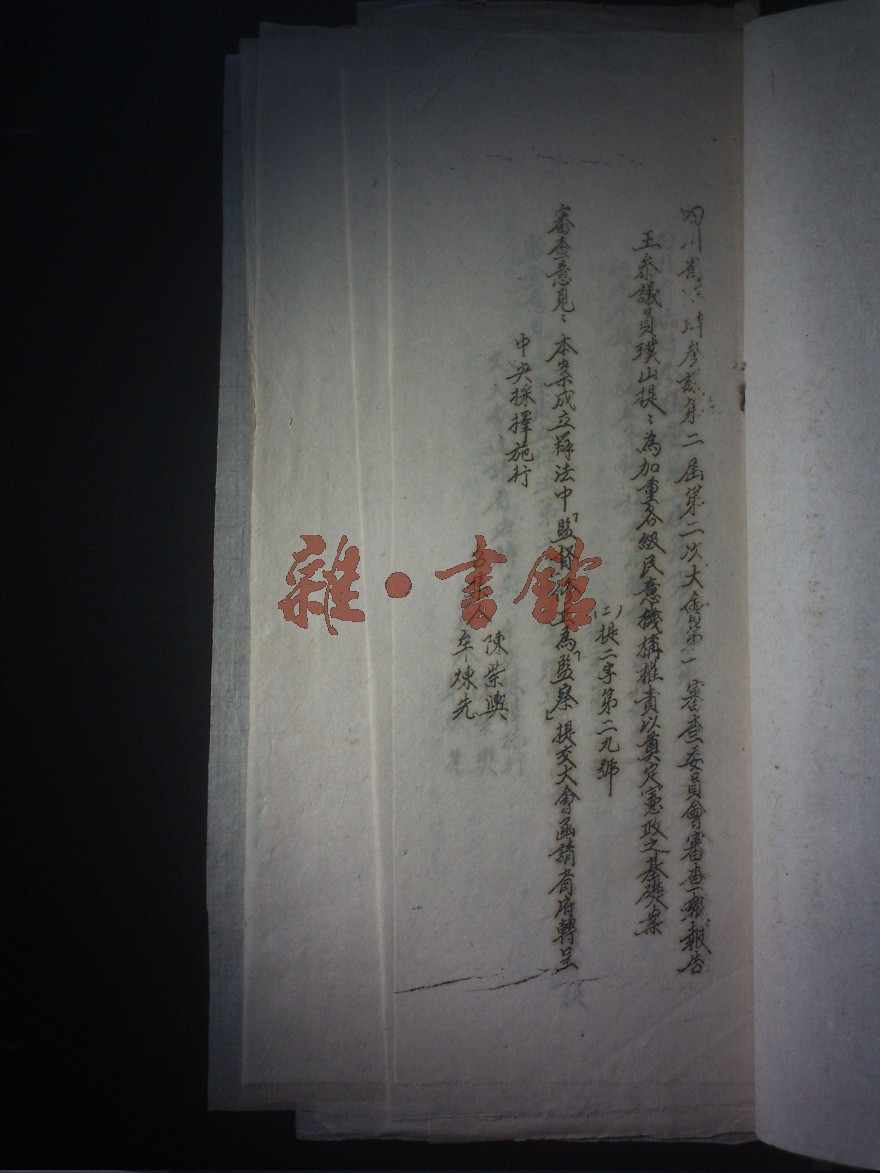 四川省臨時參議第二屆第二次大會第一審查委員會審查報告
王參議員璞山提：為加重各級民意機構權責以奠定憲政之基礎案
(二)提二字第二九號
審查意見：本案成立辦法中「監督修正為「監察」提交大會函請省府轉呈
中央採擇施行
陳紫輿
牟煉先
雜·書館